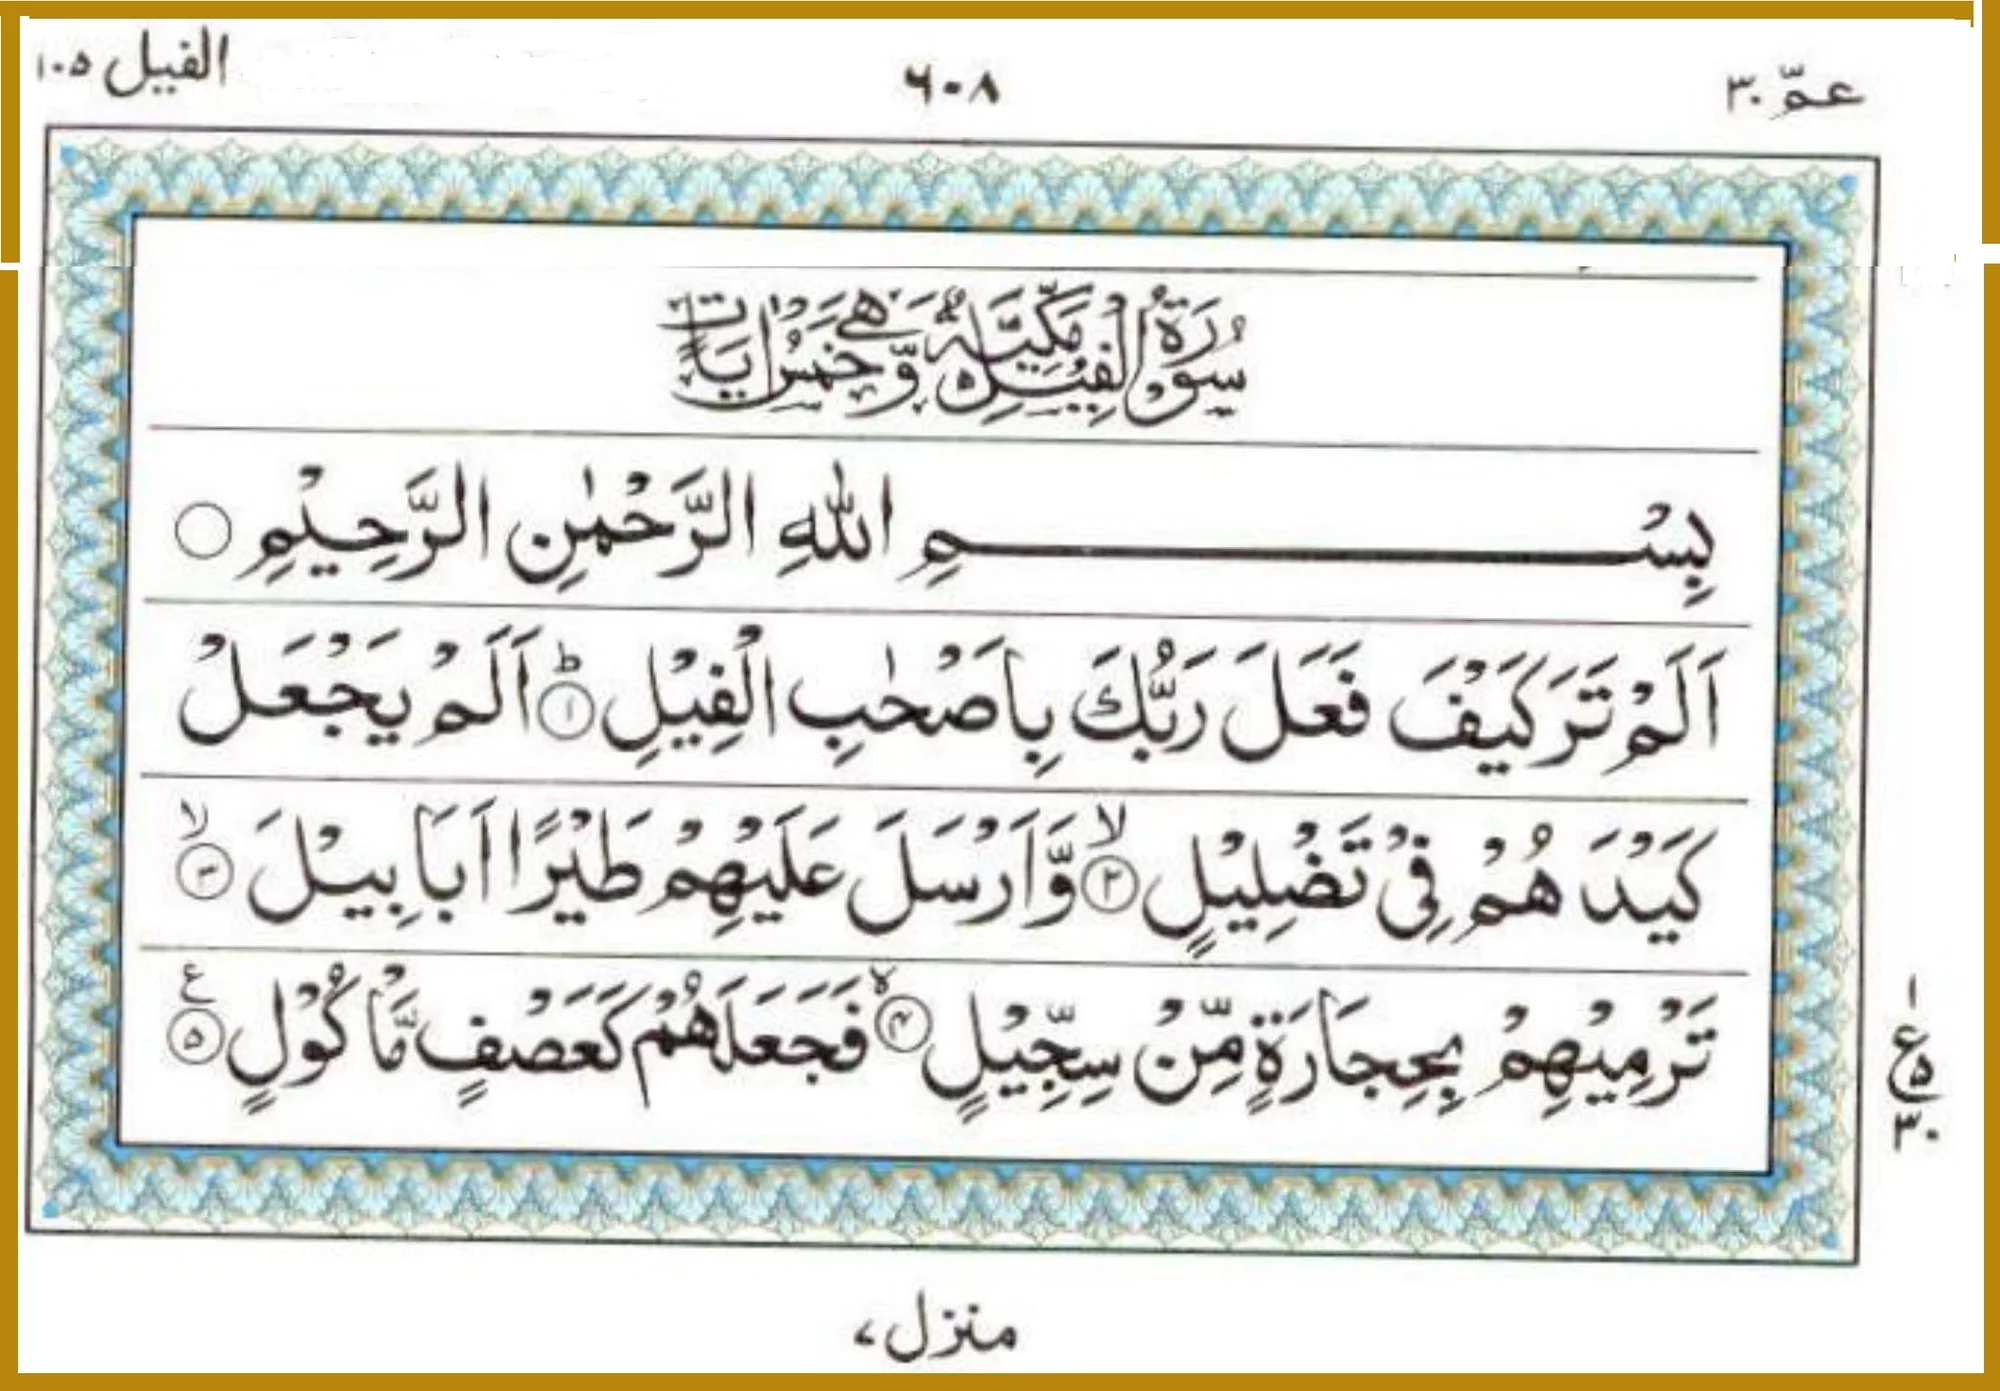 عمّ ٣٠
٦٠٨
الفيل ١٠٥
سُوْرَةُ الْفِيْلِ مَكِّيَّةٌ وَّهِيَ خَمْسُ اٰيَاتٍ
بِسْمِ اللّٰهِ الرَّحْمٰنِ الرَّحِيْمِ
اَلَمْ تَرَ كَيْفَ فَعَلَ رَبُّكَ بِاَصْحٰبِ الْفِيْلِ ؕ ۱ اَلَمْ يَجْعَلْ
كَيْدَهُمْ فِيْ تَضْلِيْلٍ ۙ ۲ وَّاَرْسَلَ عَلَيْهِمْ طَيْرًا اَبَابِيْلَ ۙ ۳
تَرْمِيْهِمْ بِحِجَارَةٍ مِّنْ سِجِّيْلٍ ۴ فَجَعَلَهُمْ كَعَصْفٍ مَّاْكُوْلٍ ع ۵
۱
ع ۵
۳۰
منزل ۷